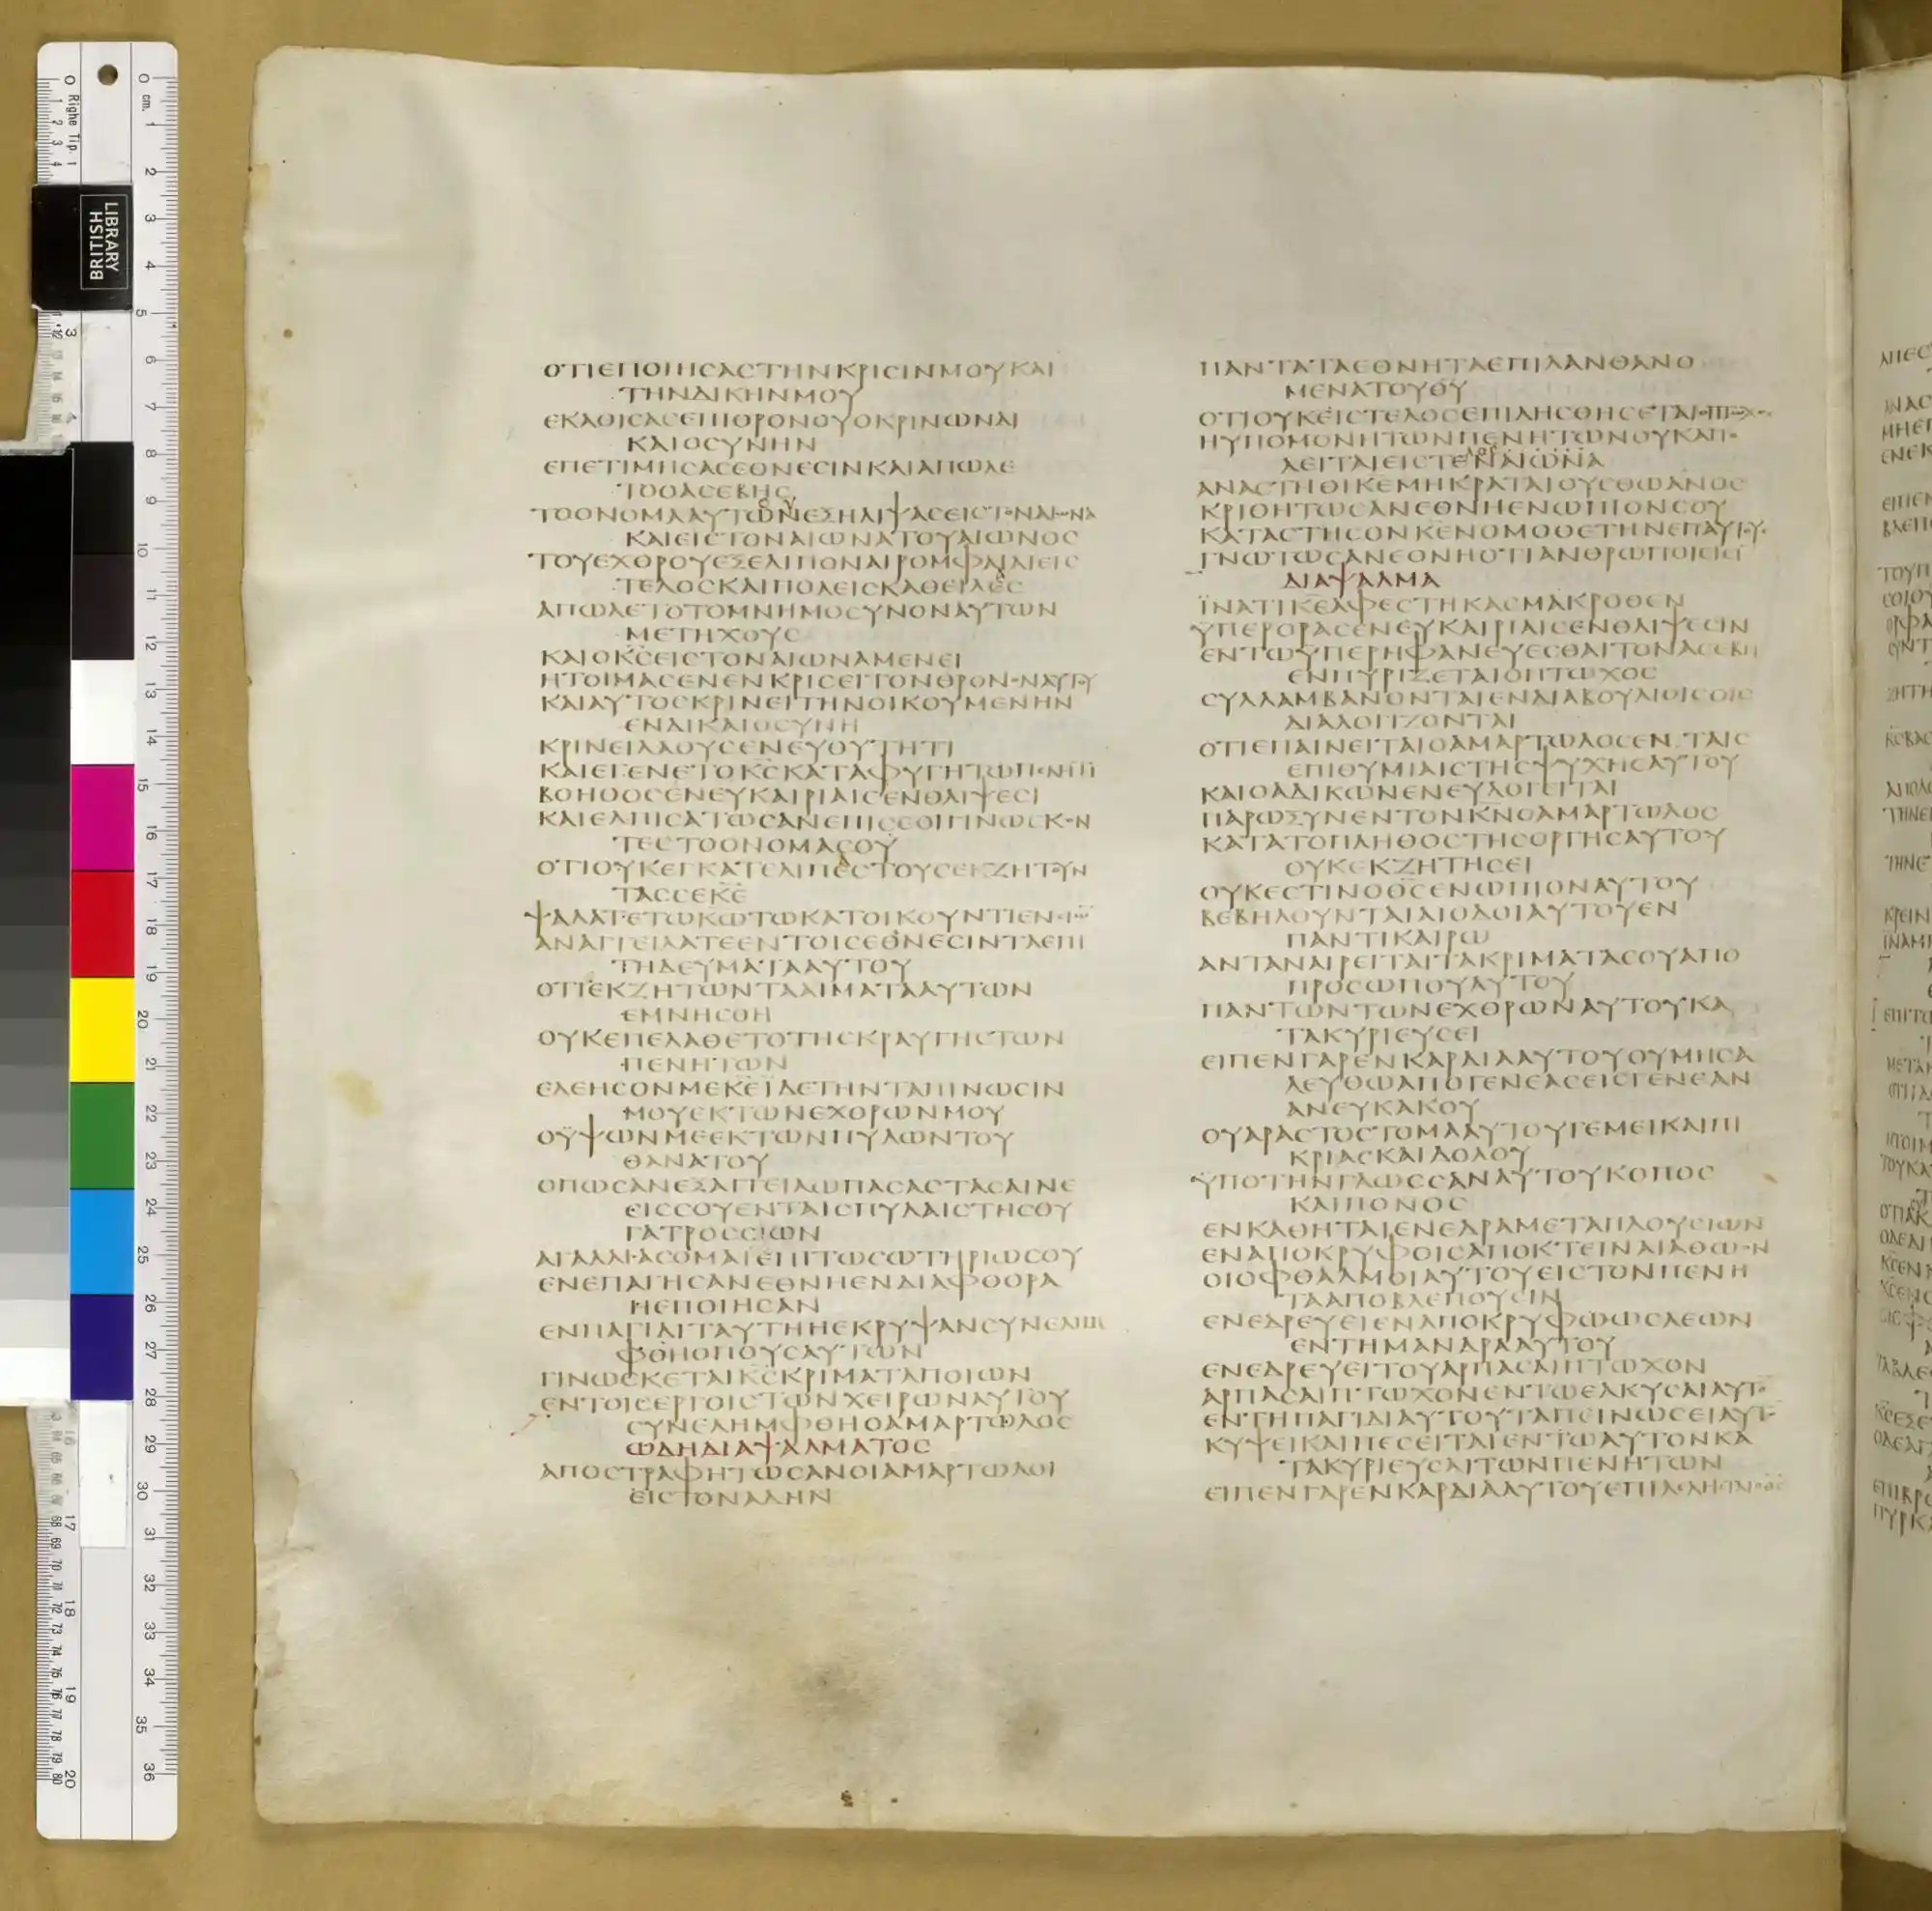 ΟΤΙΕΠΟΙΗСΑСΤΗΝΚΡΙСΙΝΜΟΥΚΑΙ
ΤΗΝΔΙΚΗΝΜΟΥ
ΕΚΑΘΙСΑСΕΠΙΘΡΟΝΟΥΟΚΡΙΝΩΝΔΙ
ΚΑΙΟСΥΝΗΝ
ΕΠΕΤΙΜΗСΑСΕΘΝΕСΙΝΚΑΙΑΠΩΛΕ
ΤΟΟΑСΕΒΗС
ΤΟΟΝΟΜΑΑΥΤΩΝΕΞΗΛΙΨΑСΕΙСΤΟΝΑΙΩΝΑ
ΚΑΙΕΙСΤΟΝΑΙΩΝΑΤΟΥΑΙΩΝΟС
ΤΟΥΕΧΘΡΟΥΕΞΕΛΙΠΟΝΑΙΡΟΜΦΑΙΑΙΕΙС
ΤΕΛΟСΚΑΙΠΟΛΕΙСΚΑΘΕΙΛΕС
ΑΠΩΛΕΤΟΤΟΜΝΗΜΟСΥΝΟΝΑΥΤΩΝ
ΜΕΤΗΧΟΥС
ΚΑΙΟΚСΕΙСΤΟΝΑΙΩΝΑΜΕΝΕΙ
ΗΤΟΙΜΑСΕΝΕΝΚΡΙСΕΙΤΟΝΘΡΟΝΟΝΑΥΤΟΥ
ΚΑΙΑΥΤΟСΚΡΙΝΕΙΤΗΝΟΙΚΟΥΜΕΝΗΝ
ΕΝΔΙΚΑΙΟСΥΝΗ
ΚΡΙΝΕΙΛΑΟΥСΕΝΕΥΘΥΤΗΤΙ
ΚΑΙΕΓΕΝΕΤΟΚСΚΑΤΑΦΥΓΗΤΩΠΕΝΗΤΙ
ΒΟΗΘΟСΕΝΕΥΚΑΙΡΙΑΙСΕΝΘΛΙΨΕСΙ
ΚΑΙΕΛΠΙСΑΤΩСΑΝΕΠΙССΟΙΓΙΝΩСΚΟΝ
ΤΕСΤΟΟΝΟΜΑСΟΥ
ΟΤΙΟΥΚΕΓΚΑΤΕΛΙΠΕСΤΟΥСΕΚΖΗΤΟΥΝ
ΤΑССΕΚΕ
ΨΑΛΑΤΕΤΩΚΩΤΩΚΑΤΟΙΚΟΥΝΤΙΕΝ
ΑΝΑΓΓΕΙΛΑΤΕΕΝΤΟΙСΕΘΝΕСΙΝΤΑΕΠΙ
ΤΗΔΕΥΜΑΤΑΑΥΤΟΥ
ΟΤΙΕΚΖΗΤΩΝΤΑΑΙΜΑΤΑΑΥΤΩΝ
ΕΜΝΗСΘΗ
ΟΥΚΕΠΕΛΑΘΕΤΟΤΗСΚΡΑΥΓΗСΤΩΝ
ΠΕΝΗΤΩΝ
ΕΛΕΗСΟΝΜΕΚΕΪΔΕΤΗΝΤΑΠΙΝΩСΙΝ
ΜΟΥΕΚΤΩΝΕΧΘΡΩΝΜΟΥ
ΟΥΨΩΝΜΕΕΚΤΩΝΠΥΛΩΝΤΟΥ
ΘΑΝΑΤΟΥ
ΟΠΩСΑΝΕΞΑΓΓΕΙΛΩΠΑСΑСΤΑСΑΙΝΕ
ΕΙССΟΥΕΝΤΑΙСΠΥΛΑΙСΤΗСΘΥ
ΓΑΤΡΟССΙΩΝ
ΑΓΑΛΛΙΑСΟΜΑΙΕΠΙΤΩСΩΤΗΡΙΩСΟΥ
ΕΝΕΠΑΓΗСΑΝΕΘΝΗΕΝΔΙΑΦΘΟΡΑ
ΗΕΠΟΙΗСΑΝ
ΕΝΠΑΓΙΔΙΤΑΥΤΗΗΕΚΡΥΨΑΝСΥΝΕΛΗΜ
ΦΘΗΟΠΟΥСΑΥΤΩΝ
ΓΙΝΩСΚΕΤΑΙΚСΚΡΙΜΑΤΑΠΟΙΩΝ
ΕΝΤΟΙСΕΡΓΟΙСΤΩΝΧΕΙΡΩΝΑΥΤΟΥ
СΥΝΕΛΗΜΦΘΗΟΑΜΑΡΤΩΛΟС
ΩΔΗΔΙΑΨΑΛΜΑΤΟС
ΑΠΟСΤΡΑΦΗΤΩСΑΝΟΙΑΜΑΡΤΩΛΟΙ
ΕΙСΤΟΝΑΔΗΝ
ΠΑΝΤΑΤΑΕΘΝΗΤΑΕΠΙΛΑΝΘΑΝΟ
ΜΕΝΑΤΟΥΘΥ
ΟΤΙΟΥΚΕΙСΤΕΛΟСΕΠΙΛΗСΘΗСΕΤΑΙΟΠΤΩΧΟС
ΗΥΠΟΜΟΝΗΤΩΝΠΕΝΗΤΩΝΟΥΚΑΠΟ
ΛΕΙΤΑΙΕΙСΤΕΝΑΙΩΝΑ
ΑΝΑСΤΗΘΙΚΕΜΗΚΡΑΤΑΙΟΥСΘΩΑΝΟС
ΚΡΙΘΗΤΩСΑΝΕΘΝΗΕΝΩΠΙΟΝСΟΥ
ΚΑΤΑСΤΗСΟΝΚΕΝΟΜΟΘΕΤΗΝΕΠΑΥΤΟΥС
ΓΝΩΤΩСΑΝΕΘΝΗΟΤΙΑΝΘΡΩΠΟΙΕΙСΙ
ΔΙΑΨΑΛΜΑ
ΪΝΑΤΙΚΕΑΦΕСΤΗΚΑСΜΑΚΡΟΘΕΝ
ΥΠΕΡΟΡΑСΕΝΕΥΚΑΙΡΙΑΙСΕΝΘΛΙΨΕСΙΝ
ΕΝΤΩΥΠΕΡΗΦΑΝΕΥΕСΘΑΙΤΟΝΑСΕΒΗ
ΕΝΠΥΡΙΖΕΤΑΙΟΠΤΩΧΟС
СΥΛΛΑΜΒΑΝΟΝΤΑΙΕΝΔΙΑΒΟΥΛΙΟΙСΟΙС
ΔΙΑΛΟΓΙΖΟΝΤΑΙ
ΟΤΙΕΠΑΙΝΕΙΤΑΙΟΑΜΑΡΤΩΛΟСΕΝΤΑΙС
ΕΠΙΘΥΜΙΑΙСΤΗСΨΥΧΗСΑΥΤΟΥ
ΚΑΙΟΑΔΙΚΩΝΕΝΕΥΛΟΓΕΙΤΑΙ
ΠΑΡΩΞΥΝΕΝΤΟΝΚΝΟΑΜΑΡΤΩΛΟС
ΚΑΤΑΤΟΠΛΗΘΟСΤΗСΟΡΓΗСΑΥΤΟΥ
ΟΥΚΕΚΖΗΤΗСΕΙ
ΟΥΚΕСΤΙΝΟΘСΕΝΩΠΙΟΝΑΥΤΟΥ
ΒΕΒΗΛΟΥΝΤΑΙΑΙΟΔΟΙΑΥΤΟΥΕΝ
ΠΑΝΤΙΚΑΙΡΩ
ΑΝΤΑΝΑΙΡΕΙΤΑΙΤΑΚΡΙΜΑΤΑСΟΥΑΠΟ
ΠΡΟСΩΠΟΥΑΥΤΟΥ
ΠΑΝΤΩΝΤΩΝΕΧΘΡΩΝΑΥΤΟΥΚΑ
ΤΑΚΥΡΙΕΥСΕΙ
ΕΙΠΕΝΓΑΡΕΝΚΑΡΔΙΑΑΥΤΟΥΟΥΜΗСΑ
ΛΕΥΘΩΑΠΟΓΕΝΕΑСΕΙСΓΕΝΕΑΝ
ΑΝΕΥΚΑΚΟΥ
ΟΥΑΡΑСΤΟСΤΟΜΑΑΥΤΟΥΓΕΜΕΙΚΑΙΠΙ
ΚΡΙΑСΚΑΙΔΟΛΟΥ
ΫΠΟΤΗΝΓΛΩССΑΝΑΥΤΟΥΚΟΠΟС
ΚΑΙΠΟΝΟС
ΕΝΚΑΘΗΤΑΙΕΝΕΔΡΑΜΕΤΑΠΛΟΥСΙΩΝ
ΕΝΑΠΟΚΡΥΦΟΙСΑΠΟΚΤΕΙΝΑΙΑΘΩΟΝ
ΟΙΟΦΘΑΛΜΟΙΑΥΤΟΥΕΙСΤΟΝΠΕΝΗ
ΤΑΑΠΟΒΛΕΠΟΥСΙΝ
ΕΝΕΔΡΕΥΕΙΕΝΑΠΟΚΡΥΦΩΩСΛΕΩΝ
ΕΝΤΗΜΑΝΔΡΑΑΥΤΟΥ
ΕΝΕΔΡΕΥΕΙΤΟΥΑΡΠΑСΑΙΠΤΩΧΟΝ
ΑΡΠΑСΑΙΠΤΩΧΟΝΕΝΤΩΕΛΚΥСΑΙΑΥΤΟ
ΕΝΤΗΠΑΓΙΔΙΑΥΤΟΥΤΑΠΕΙΝΩСΕΙΑΥΤΟ
ΚΥΨΕΙΚΑΙΠΕСΕΙΤΑΙΕΝΤΩΑΥΤΟΝΚΑ
ΤΑΚΥΡΙΕΥСΑΙΤΩΝΠΕΝΗΤΩΝ
ΕΙΠΕΝΓΑΡΕΝΚΑΡΔΙΑΑΥΤΟΥΕΠΙΛΕΛΗСΤΑΙΟΘС
LIBRARY
BRITISH